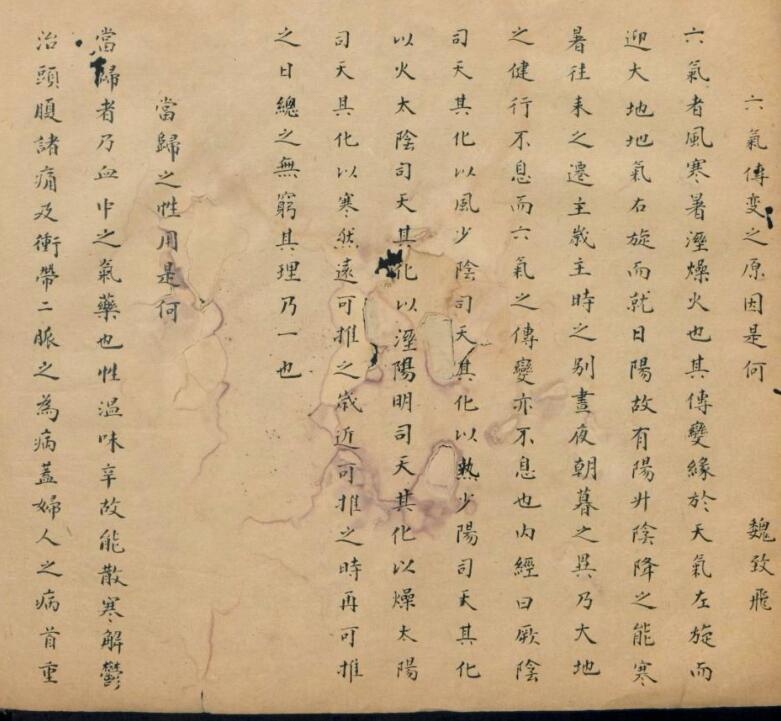 六氣傳变之原因是何 魏致飛
六氣者風寒暑溼燥火也其傳變緣於天氣左旋而
迎大地地氣右旋而就日陽故有陽升陰降之能寒
暑往来之遷主歲主時之别晝夜朝暮之異乃大地
之健行不息而六氣之傳變亦不息也内經曰厥陰
司天其化以風少陰司天其化以熱少陽司天其化
以火太陰司天其化以溼陽明司天其化以燥太陽
司天其化以寒然遠可推之歲近可推之時再可推
之日總之無窮其理乃一也
當歸之性用是何
當歸者乃血中之氣藥也性温味辛故能散寒解鬱
治頭腹諸痛及衝帶二脈之為病蓋婦人之病首重